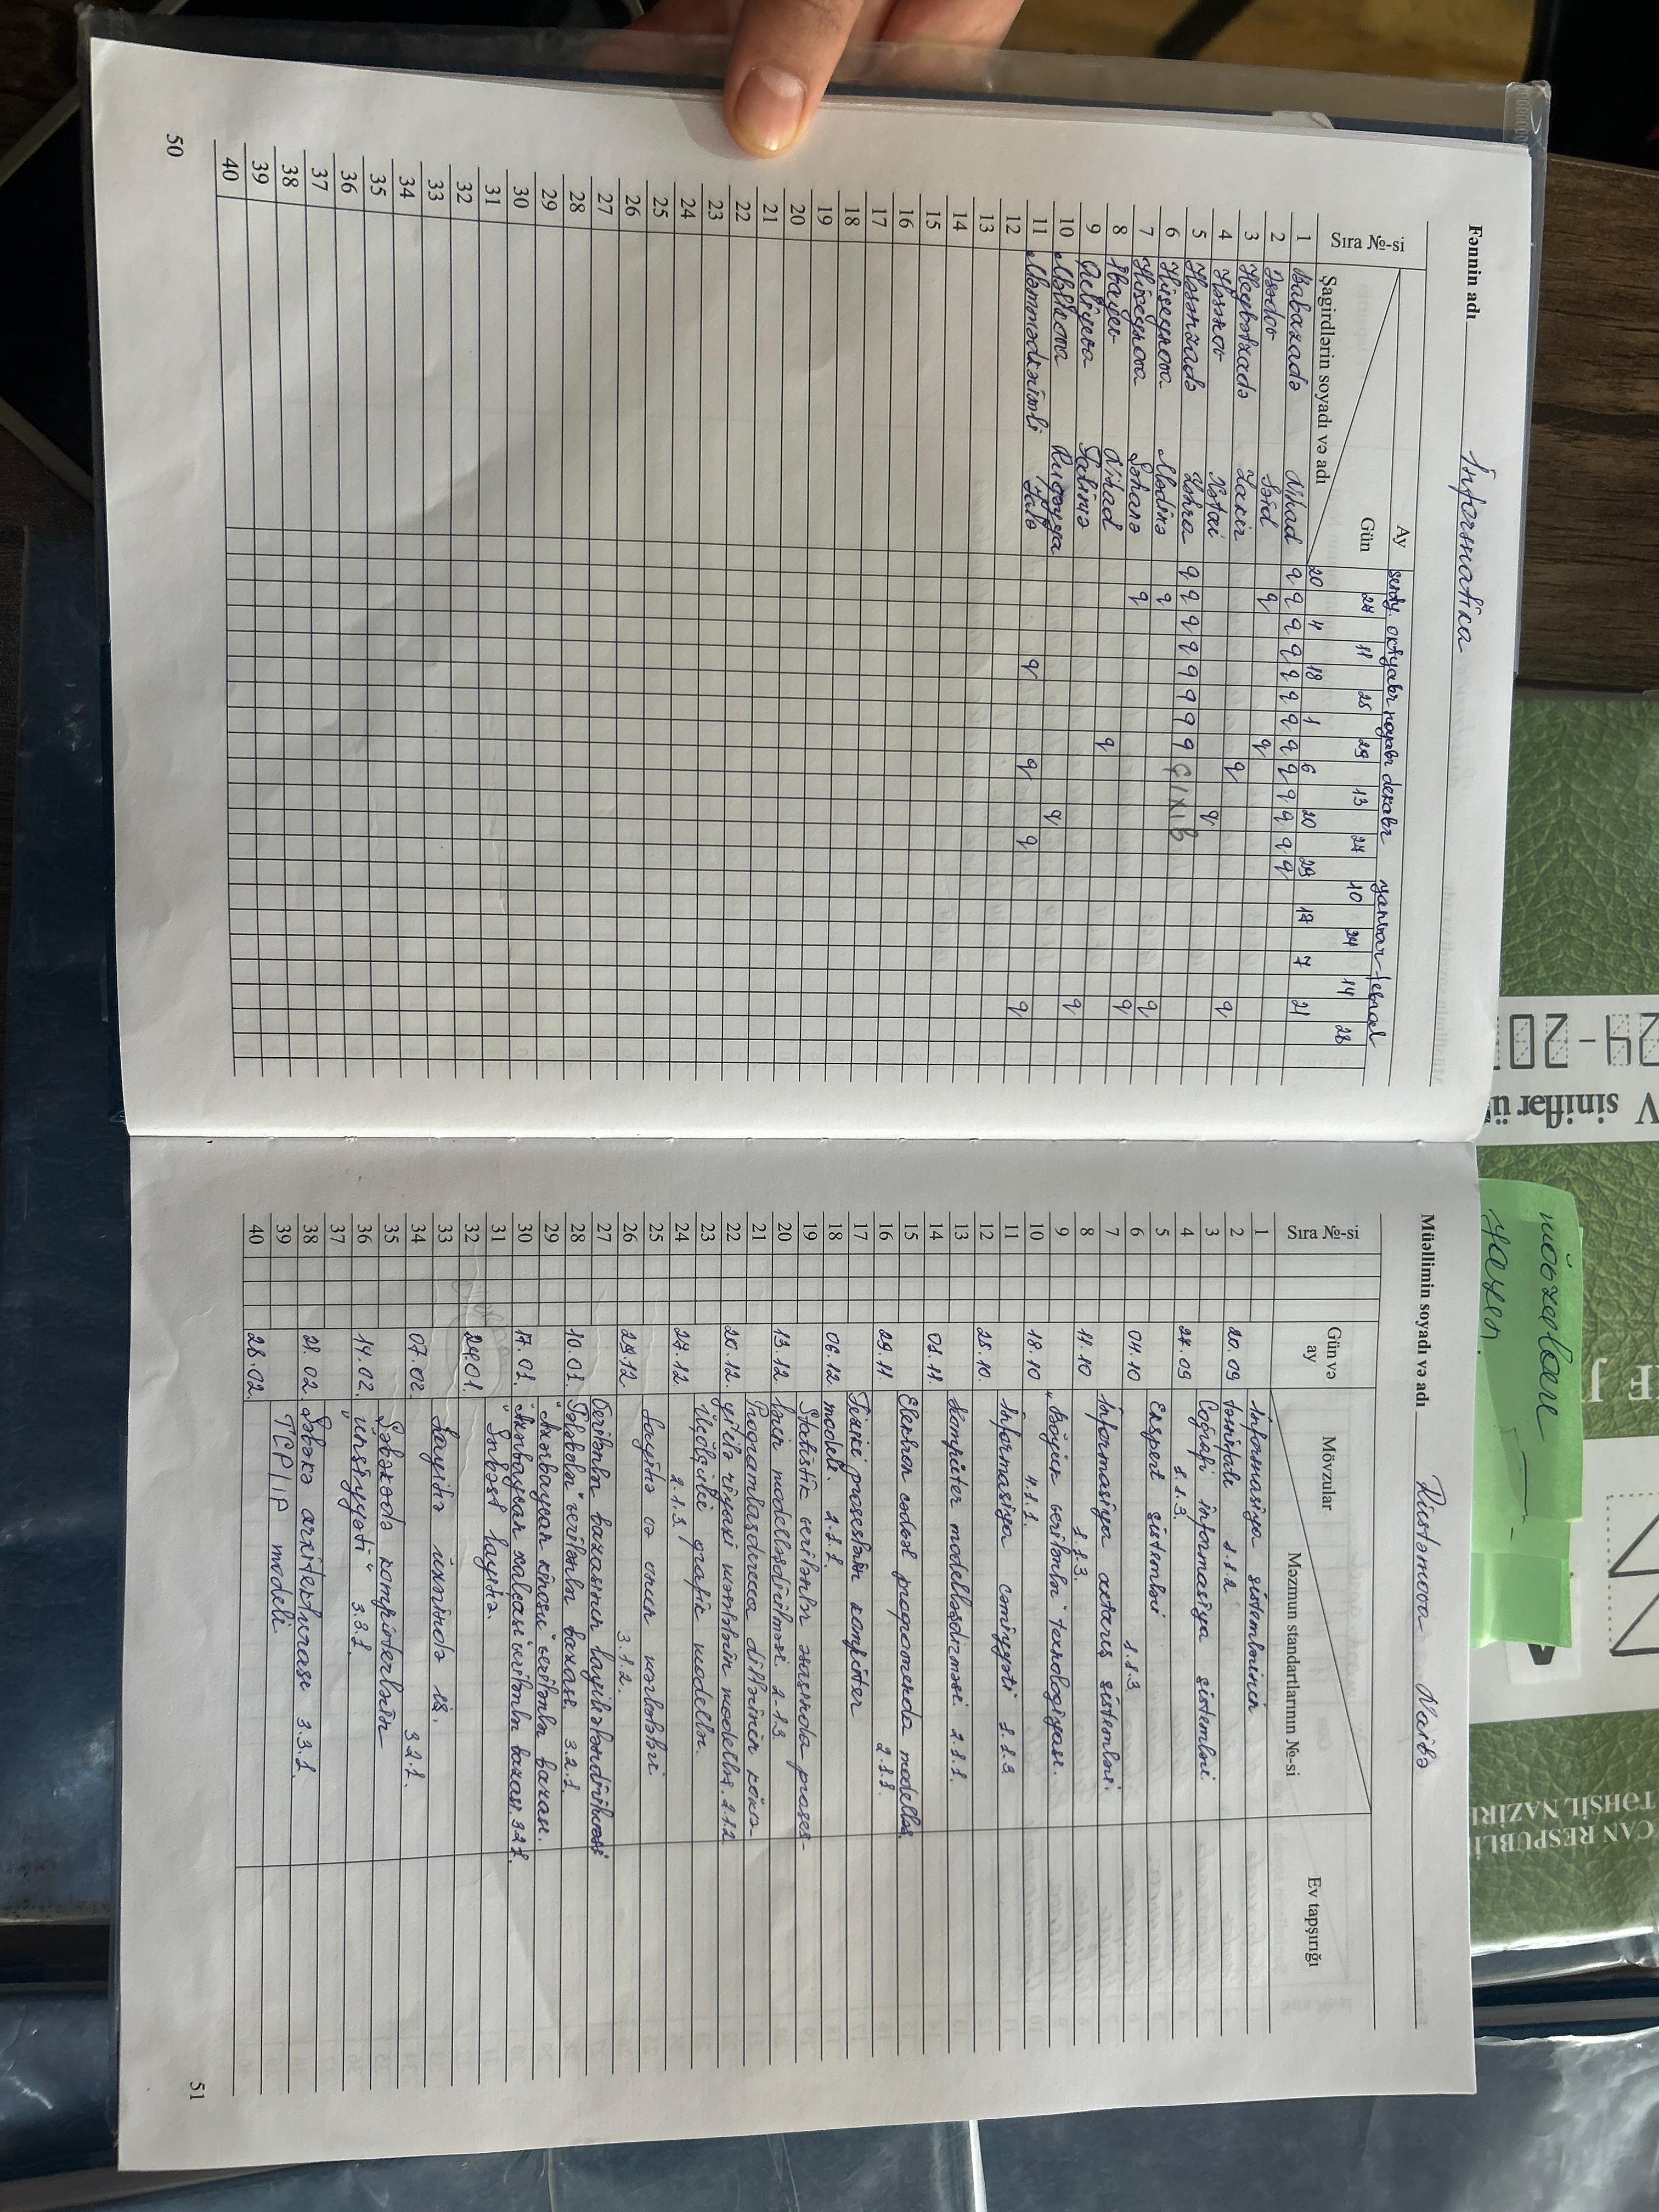 24-20
V siniflər ü
F J
CAN RESPUBLİ
TƏHSİL NAZİRİ
mövzuları
yazın.
Fənnin adı İnformatika
Sıra №-si
Ay senty. oktyabr noyabr dekabr yanvar fevral
Gün 27 11 25 29 13 27 10 24 14 28
Şagirdlərin soyadı və adı 20 4 18 1 6 20 29 17 7 21
1 Babazadə Nihad q q q q q q q q q q q q q
2 Əsədov Səid q q
3 Heybətzadə Zakir q
4 Həsənov Xətai q q
5 Həsənzadə Zəhra q q q q q q q q ÇIXIB
6 Hüseynova Mədinə q
7 Hüseynova Şəhanə q q
8 İbayev Nihad q q
9 Quliyeva Fatimə
10 Məlikova Ruqəyya q q
11 Məmmədkərimli Jalə q q q q
12
13
14
15
16
17
18
19
20
21
22
23
24
25
26
27
28
29
30
31
32
33
34
35
36
37
38
39
40
50
Müəllimin soyadı və adı Rüstəmova Naibə
Sıra №-si
Gün və ay
Mövzular
Məzmun standartlarının №-si
Ev tapşırığı
1 İnformasiya sistemlərinin
2 20.09 təsnifatı 1.1.2
3 Coğrafi informasiya sistemləri
4 27.09 1.1.3.
5 Ekspert sistemləri
6 04.10 1.1.3.
7 İnformasiya axtarış sistemləri.
8 11.10 1.1.3.
9 "Böyük verilənlər" texnologiyası.
10 18.10 4.1.1.
11 İnformasiya cəmiyyəti 1.1.3
12 25.10.
13 Kompüter modelləşdirməsi. 2.1.1.
14 01.11.
15 Elektron cədvəl proqramında modelləş.
16 29.11. 2.1.1.
17 Fiziki proseslərin kompüter
18 06.12. modeli. 2.1.1.
19 Statistik verilənlər əsasında proses-
20 13.12 lərin modelləşdirilməsi. 2-1.3.
21 Proqramlaşdırma dillərinin kömə-
22 20.12. yi ilə riyazi məsələlərin modelləş. 2.1.2
23 Üçölçülü qrafik modellər.
24 27.12 2.1.3.
25 Layihə və onun mərhələləri
26 29.12. 3.1.2.
27 Verilənlər bazasının layihələndirilməsi
28 10.01. Tələbələr" verilənlər bazası. 3.2.1.
29 "Azərbaycan kinosu" verilənlər bazası.
30 17.01. "Azərbaycan xalçası" verilənlər bazası. 3.2.1.
31 "Sərbəst layihə.
32 24.01.
33 Layihə üzərində iş.
34 07.02. 3.2.1.
35 Şəbəkədə kompüterlərin
36 14.02. "ünsiyyəti" 3.3.1.
37
38 21.02. Şəbəkə arxitekturası 3.3.1.
39 TCP/IP modeli.
40 28.02.
51